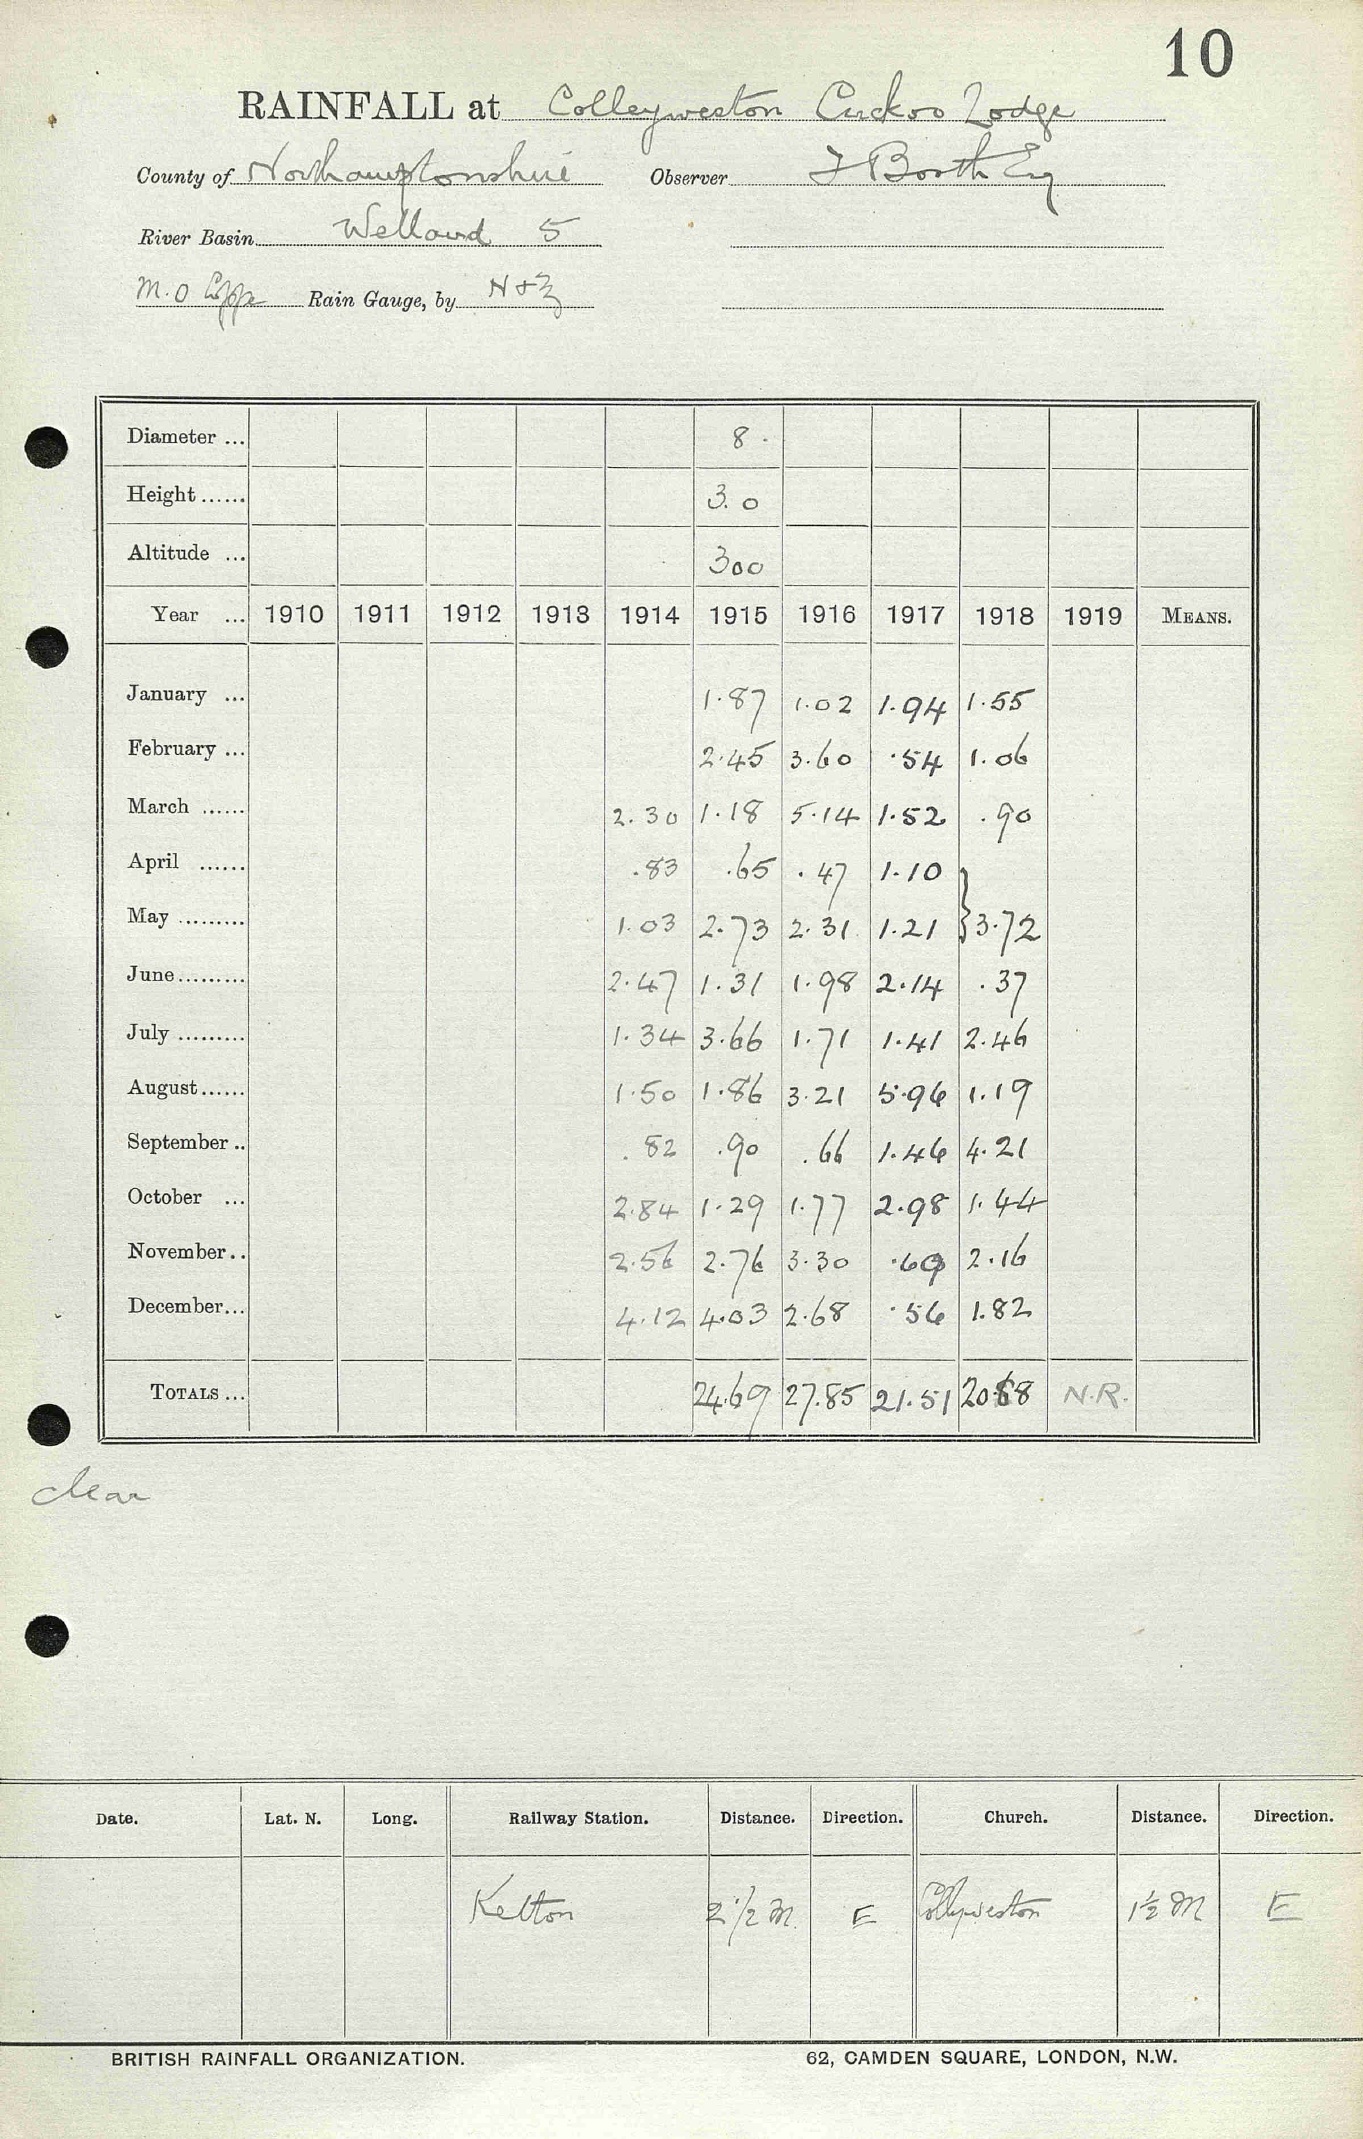 10
RAINFALL at Colleyweston Cuckoo Lodge
County of Northamptonshire Observer F Booth Esq
River Basin Welland 5
M.O Rain Gauge, by N & Z
Diameter ... 8.
Height ...... 3.0
Altitude ... 300
Year ... 1910 1911 1912 1913 1914 1915 1916 1917 1918 1919 MEANS.
January ... 1.87 1.02 1.94 1.55
February ... 2.45 3.60 .54 1.06
March ...... 2.30 1.18 5.14 1.52 .90
April ...... .83 .65 .47 1.10 }
May ......... 1.03 2.73 2.31 1.21 } 3.72
June ......... 2.47 1.31 1.98 2.14 .37
July ......... 1.34 3.66 1.71 1.41 2.46
August ...... 1.50 1.86 3.21 5.96 1.19
September .. .82 .90 .66 1.46 4.21
October ... 2.84 1.29 1.77 2.98 1.44
November .. 2.56 2.76 3.30 .69 2.16
December ... 4.12 4.03 2.68 .56 1.82
TOTALS ... 24.69 27.85 21.51 20.88 N.R.
clear
Date. Lat. N. Long. Railway Station. Distance. Direction. Church. Distance. Direction.
Ketton 2 1/2 M. E Collyweston 1½ M E
BRITISH RAINFALL ORGANIZATION. 62, CAMDEN SQUARE, LONDON, N.W.